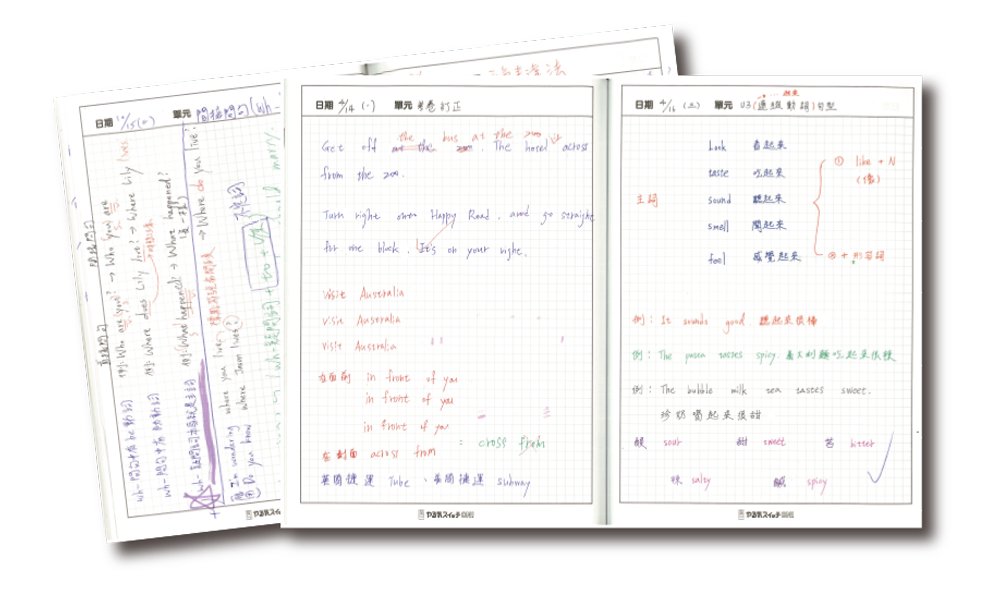 日期 4/14 (一) 單元 考卷訂正
Get off the bus at the zoo. The hotel is across
from the zoo.
Turn right onto Happy Road, and go straight
for one block. It's on your right.
visit Australia
visit Australia
visit Australia
在前面 in front of you
in front of you
in front of you
在對面 across from = cross from
英國捷運 Tube、美國捷運 subway
やる気スイッチ
日期 4/16 (三) 單元 U3 (連綴動詞)句型
...起來
look 看起來
taste 吃起來
主詞 sound 聽起來
smell 聞起來
feel 感覺起來
① like + N
(像)
② + 形容詞
例：It sounds good 聽起來很棒
例：The pasta tastes spicy. 義大利麵吃起來很辣
例：The bubble milk tea tastes sweet.
珍奶嚐起來很甜
酸 sour 甜 sweet 苦 bitter
辣 salty 鹹 spicy
やる気スイッチ
日期 單元 間接問句(wh-
直接問句 間接問句
wh-問句中有be動詞 例: Who are you? → Who you are
wh-問句中有助動詞 例: Where does Lily live? → Where Lily lives
wh-疑問詞本身就是主詞 例: What happened? → What happened?
→ Where do you live?
I'm wondering where you live.
Do you know where Jason lives?
やる気スイッチ